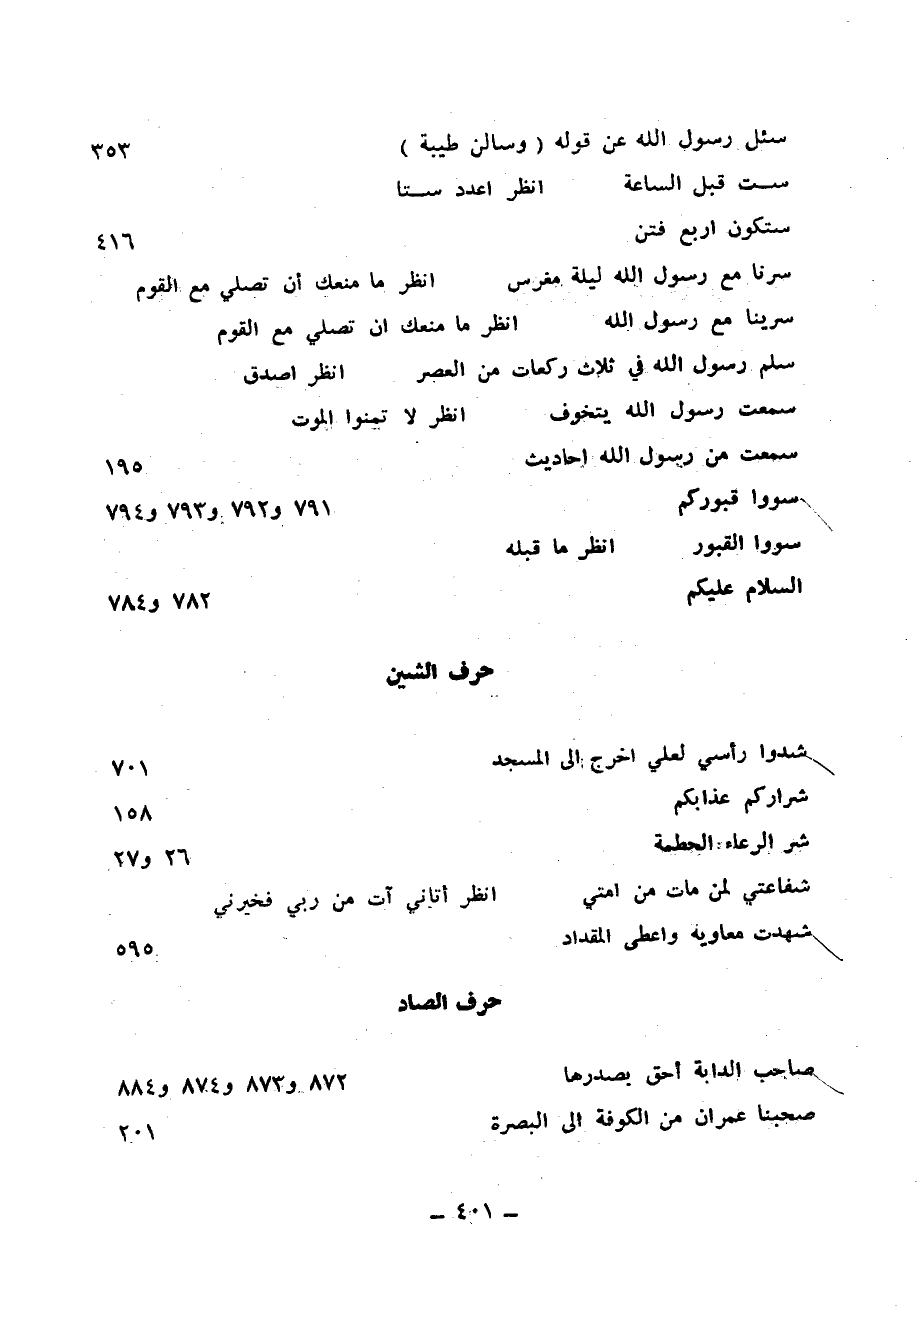 سئل رسول الله عن قوله ( وسالن طيبة ) ٣٥٣
ست قبل الساعة انظر اعدد ستا
ستكون اربع فتن ٤١٦
سرنا مع رسول الله ليلة مفرس انظر ما منعك أن تصلي مع القوم
سرينا مع رسول الله انظر ما منعك ان تصلي مع القوم
سلم رسول الله في ثلاث ركعات من العصر انظر اصدق
سمعت رسول الله يتخوف انظر لا تمنوا الموت
سمعت من رسول الله احاديث ١٩٥
سووا قبوركم ٧٩١ و٧٩٢ و٧٩٣ و٧٩٤
سووا القبور انظر ما قبله
السلام عليكم ٧٨٢ و٧٨٤
حرف الشين
شدوا رأسي لعلي اخرج الى المسجد ٧٠١
شراركم عذابكم ١٥٨
شر الرعاء الحطمة ٢٦ و٢٧
شفاعتي لمن مات من امتي انظر أتاني آت من ربي فخيرني
شهدت معاوية واعطى المقداد ٥٩٥
حرف الصاد
صاحب الدابة أحق بصدرها ٨٧٢ و٨٧٣ و٨٧٤ و٨٨٤
صحبنا عمران من الكوفة الى البصرة ٢٠١
ـ ٤٠١ ـ